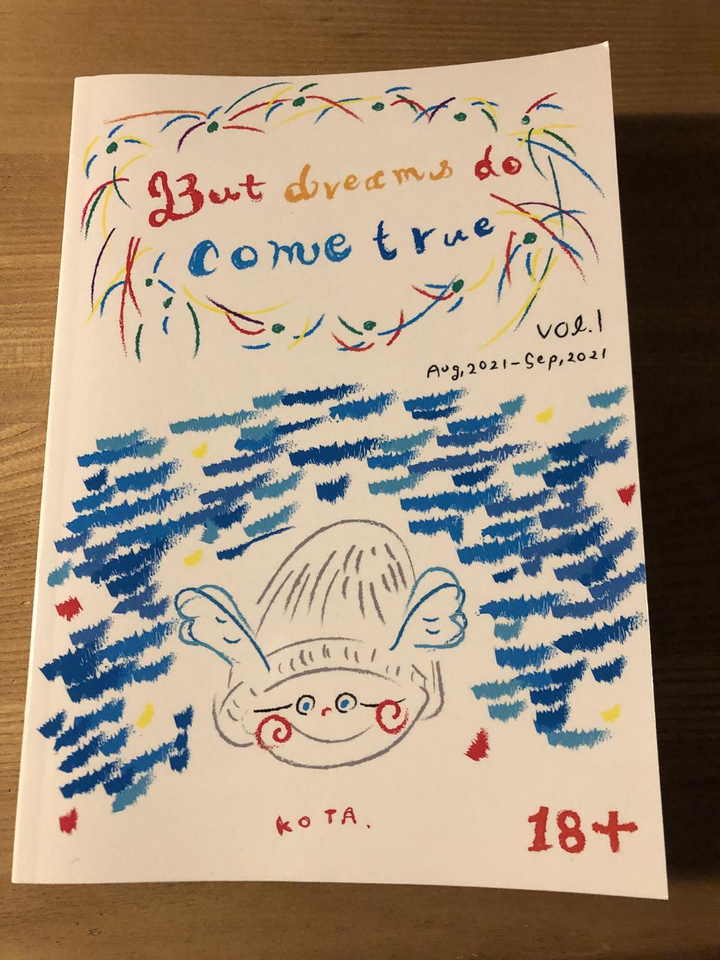 But dreams do
come true
VOL.1
Aug,2021-Sep,2021
KOTA.
18+